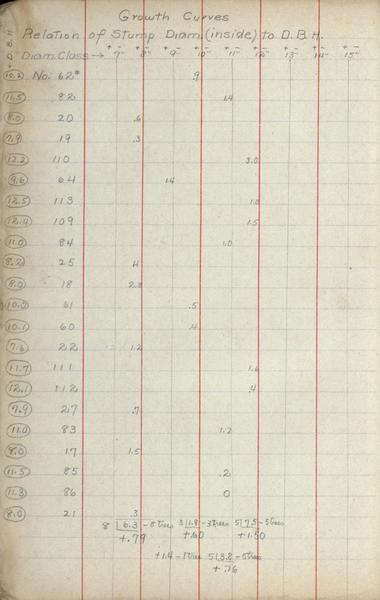 Growth Curves
Relation of Stump Diam. (inside) to D.B.H.
D.B.H.
Diam. Class → 7" 8" 9" 10" 11" 12" 13" 14" 15"
10.2 No. 62* .9
11.5 82 1.4
8.0 20 .6
7.9 19 .3
12.2 110 3.0
9.6 64 1.4
12.5 113 1.0
12.4 109 1.5
11.0 84 1.0
8.2 25
8.0 18
10.3 61 .5
10.1 60 .4
7.6 22 1.2
11.7 111 1.6
12.1 112 .4
7.9 27 .7
11.0 83 1.2
8.0 17 1.5
11.5 85 .2
11.3 86 0
8.0 21 .3
8 | 6.3 - 8 trees 3 | 1.8 - 3 trees 5 | 7.5 - 5 trees
+.79 +.60 +1.50
+1.4 - 1 tree 5 | 3.8 - 5 trees
+.76